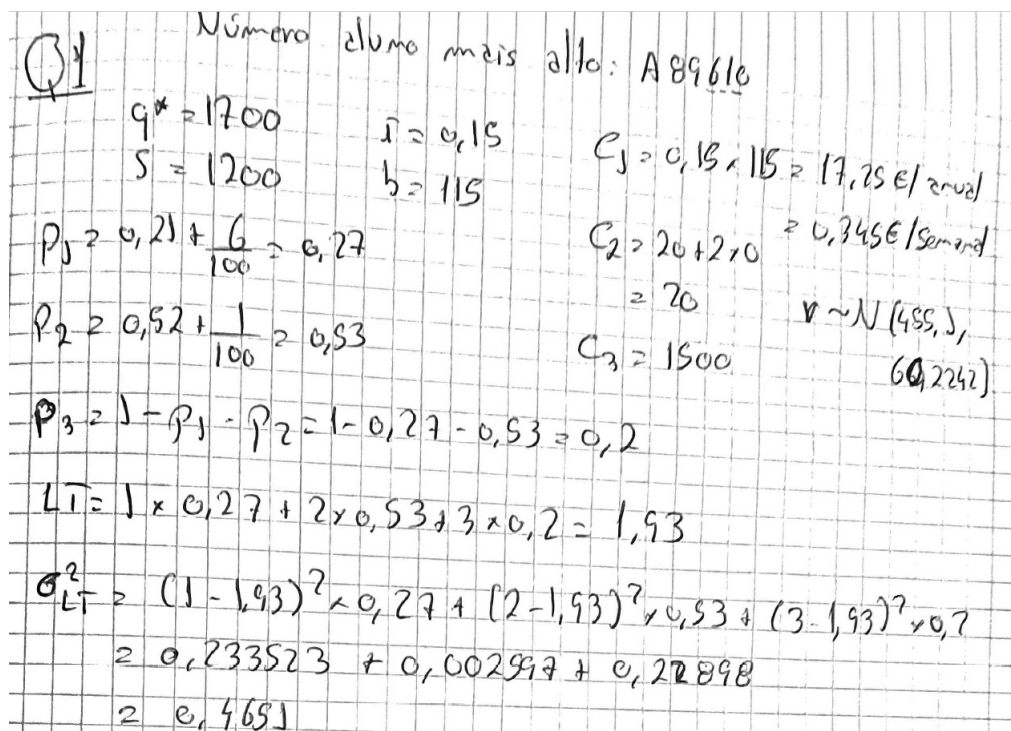 Q1 Número aluno mais alto: A89610
q* = 1700
S = 1200
I = 0,15
b = 115
C1 = 0,15 × 115 = 17,25 €/anual
= 0,345€/Semanal
P1 = 0,21 + 6/100 = 0,27
C2 = 20 + 2×0
= 20
P2 = 0,52 + 1/100 = 0,53
C3 = 1500
r ~ N (455,1,
60,2242)
P3 = 1 - P1 - P2 = 1 - 0,27 - 0,53 = 0,2
LT = 1 × 0,27 + 2 × 0,53 + 3 × 0,2 = 1,93
σ²LT = (1 - 1,93)² × 0,27 + (2 - 1,93)² × 0,53 + (3 - 1,93)² × 0,2
= 0,233523 + 0,002597 + 0,22898
= 0,4651